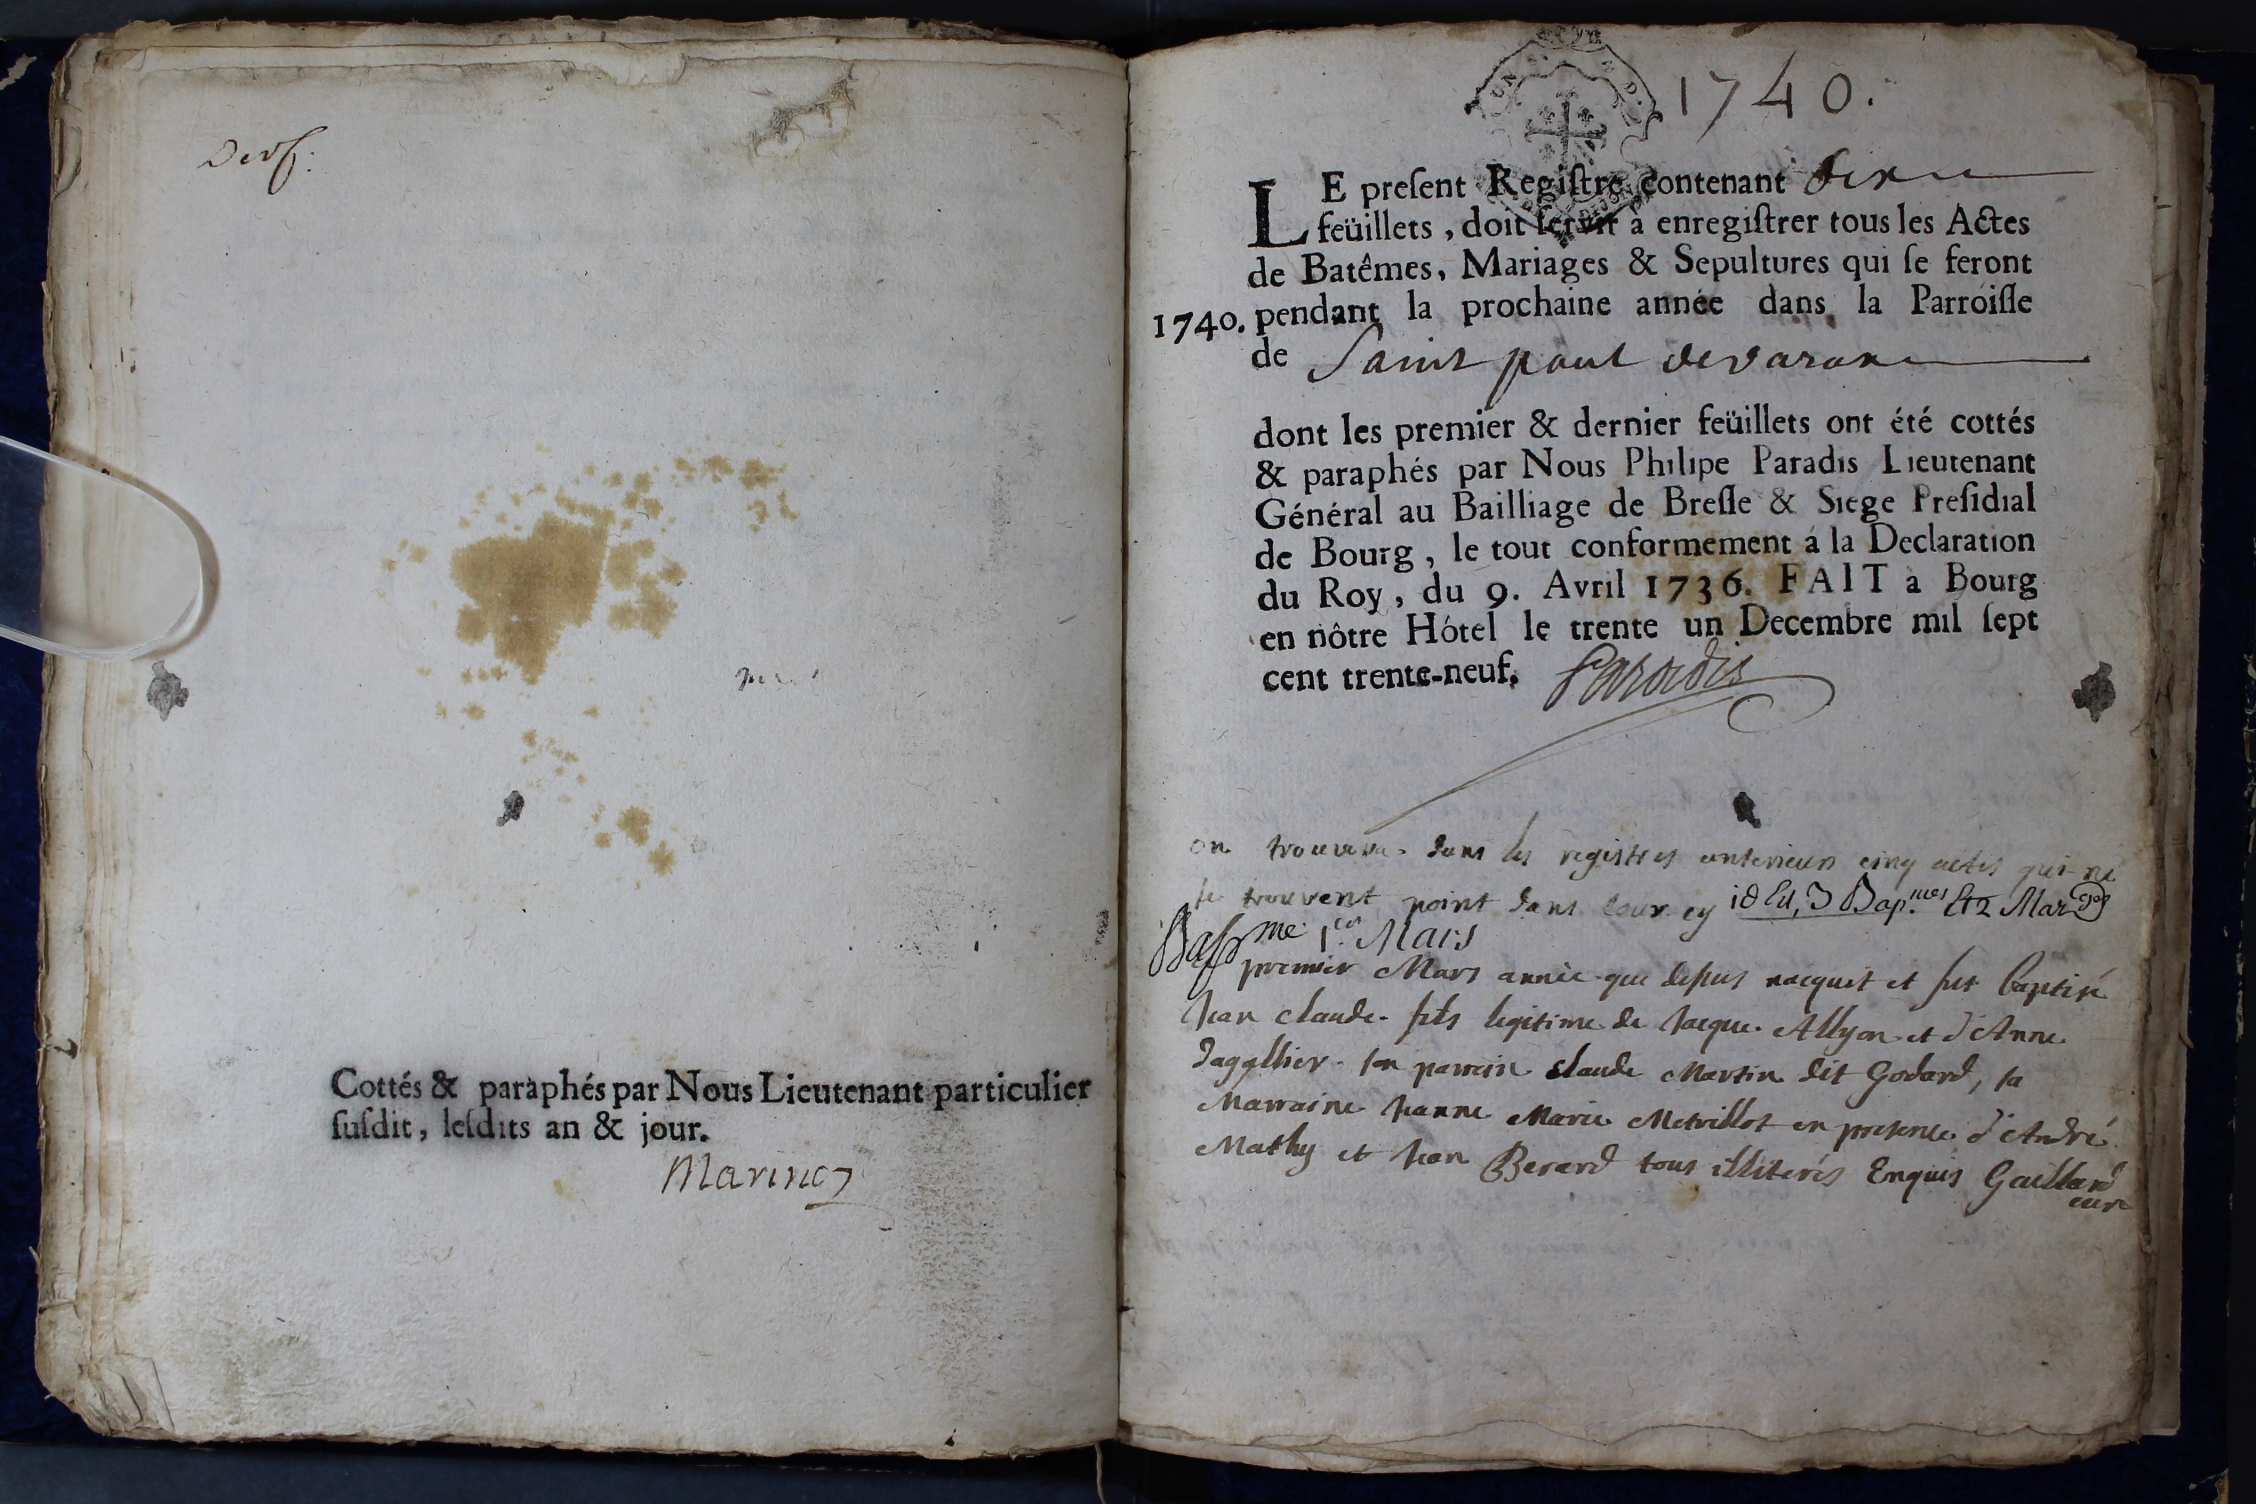 Cottés & paraphés par Nous Lieutenant particulier
suſdit, leſdits an & jour.
1740.
LE preſent Regiſtre contenant
feüillets, doit ſervir à enregiſtrer tous les Actes
de Batêmes, Mariages & Sepultures qui ſe feront
1740. pendant la prochaine année dans la Parroiſſe
de Saint paul de varax
dont les premier & dernier feüillets ont été cottés
& paraphés par Nous Philipe Paradis Lieutenant
Général au Bailliage de Breſſe & Siege Preſidial
de Bourg, le tout conformement á la Declaration
du Roy, du 9. Avril 1736. FAIT à Bourg
en nôtre Hótel le trente un Decembre mil ſept
cent trente-neuf. Paradis
on trouvera dans les registres anterieurs cinq actes qui ne
se trouvent point dans ceux cy 3 Bap.mes Et 2 Mar
1er Mars
premier Mars année que dessus nacquit et fut baptisé
Jean claude fils legitime de Jacque Allyon et d'Anne
Dagallier son parrain claude Martin dit Godard, sa
Marraine Jeanne Marie Metrillot en presence d'André
Mathy et Jean Berard tous illiterés Enquis Gaillard
curé